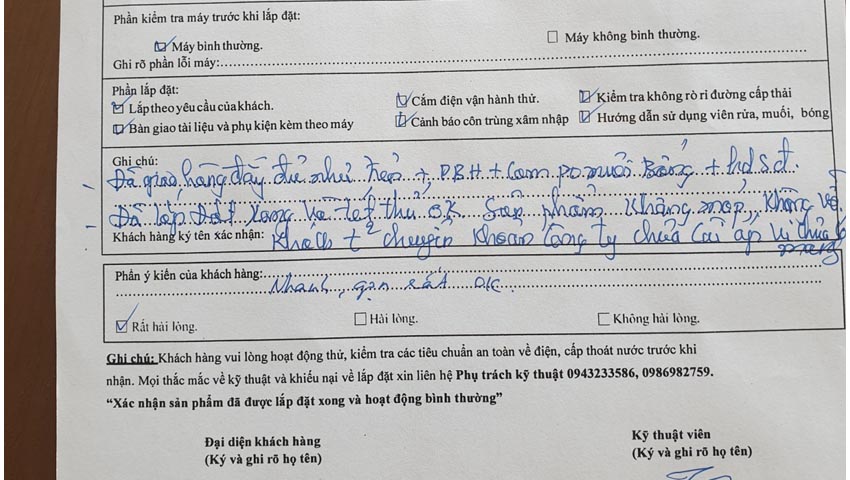 Phần kiểm tra máy trước khi lắp đặt:
Máy bình thường. Máy không bình thường.
Ghi rõ phần lỗi máy:
Phần lắp đặt:
Lắp theo yêu cầu của khách. Cắm điện vận hành thử. Kiểm tra không rò rỉ đường cấp thải
Bàn giao tài liệu và phụ kiện kèm theo máy Cảnh báo côn trùng xâm nhập Hướng dẫn sử dụng viên rửa, muối, bóng
Ghi chú:
- Đã giao hàng đầy đủ như trên +, PBH + Com po muối Bóng + hdsd
- Đã lắp Đặt xong và test thử ok Sản phẩm Không móp, Không vỡ
Khách hàng ký tên xác nhận: Khách t² chuyển khoản công ty chưa cài áp vì chưa có
mạng
Phần ý kiến của khách hàng:
Nhanh, gọn rất ok.
Rất hài lòng. Hài lòng. Không hài lòng.
Ghi chú: Khách hàng vui lòng hoạt động thử, kiểm tra các tiêu chuẩn an toàn về điện, cấp thoát nước trước khi
nhận. Mọi thắc mắc về kỹ thuật và khiếu nại về lắp đặt xin liên hệ Phụ trách kỹ thuật 0943233586, 0986982759.
“Xác nhận sản phẩm đã được lắp đặt xong và hoạt động bình thường”
Đại diện khách hàng Kỹ thuật viên
(Ký và ghi rõ họ tên) (Ký và ghi rõ họ tên)